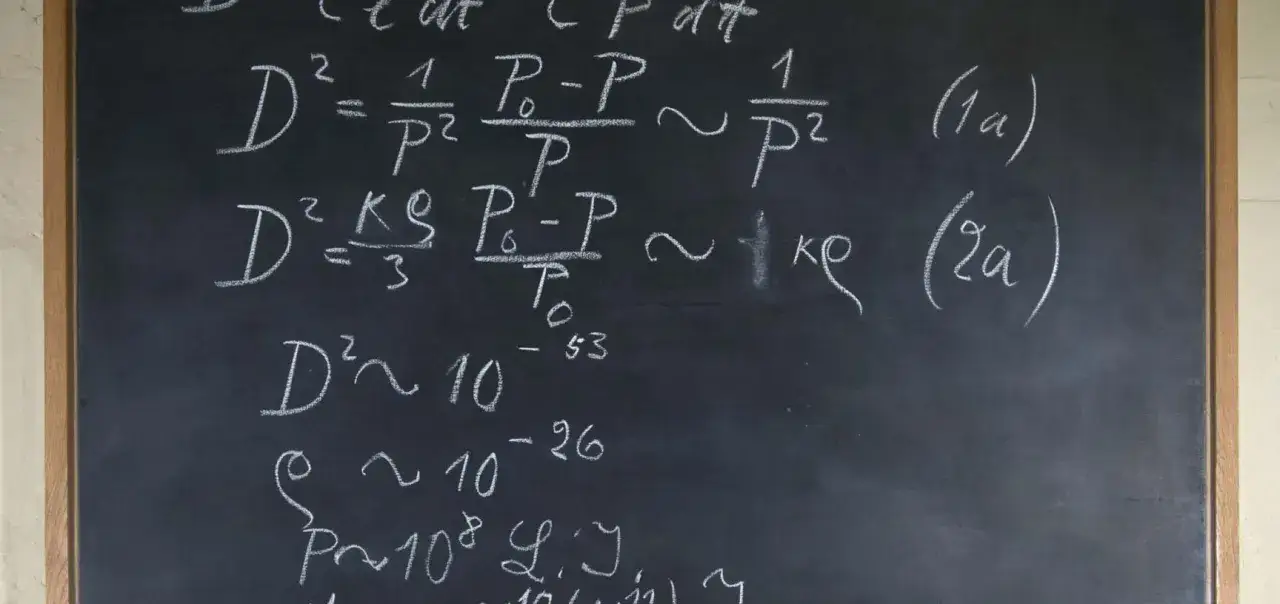 D² = 1/P² (P₀ − P)/P ~ 1/P² (1a)
D² = κρ/3 (P₀ − P)/P₀ ~ κρ (2a)
D² ~ 10⁻⁵³
ρ ~ 10⁻²⁶
P ~ 10⁸ L.J.